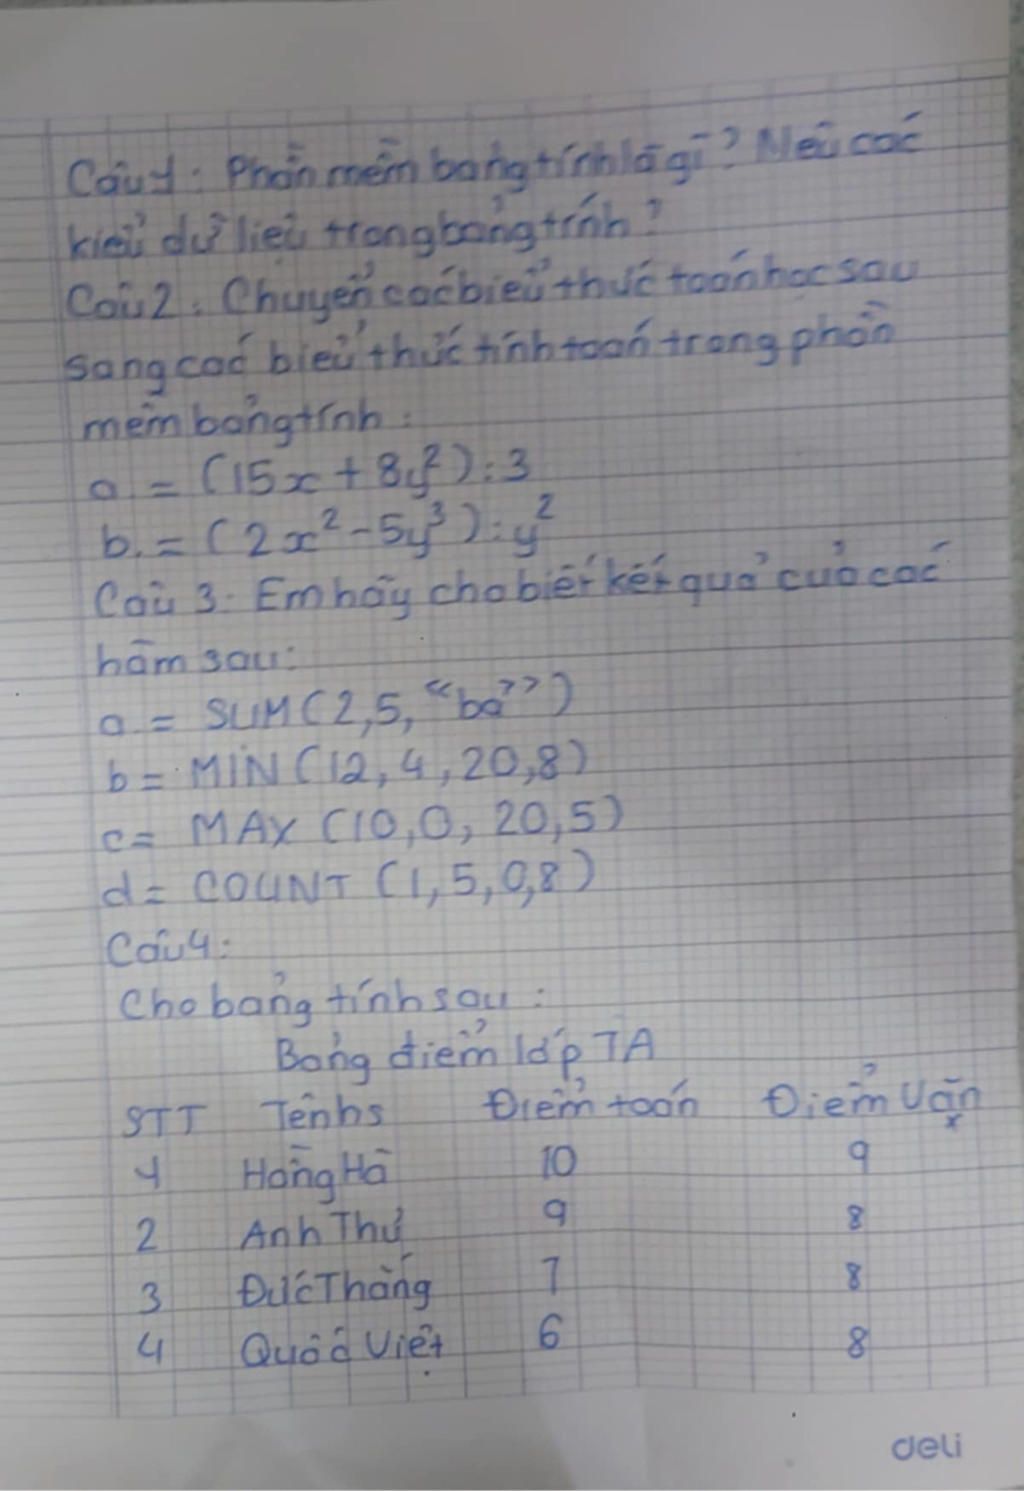 Câu 1: Phần mềm bảng tính là gì? Nêu các
kiểu dữ liệu trong bảng tính?
Câu 2: Chuyển các biểu thức toán học sau
sang các biểu thức tính toán trong phần
mềm bảng tính:
a = (15x + 8y²) : 3
b. = (2x² - 5y³) : y²
Câu 3: Em hãy cho biết kết quả của các
hàm sau:
a = SUM(2,5, “ba”)
b = MIN(12, 4, 20, 8)
c = MAX (10, 0, 20, 5)
d = COUNT (1, 5, 0, 8)
Câu 4:
Cho bảng tính sau:
Bảng điểm lớp 7A
STT Tên hs Điểm toán Điểm Văn
1 Hồng Hà 10 9
2 Anh Thư 9 8
3 Đức Thắng 7 8
4 Quốc Việt 6 8
deli